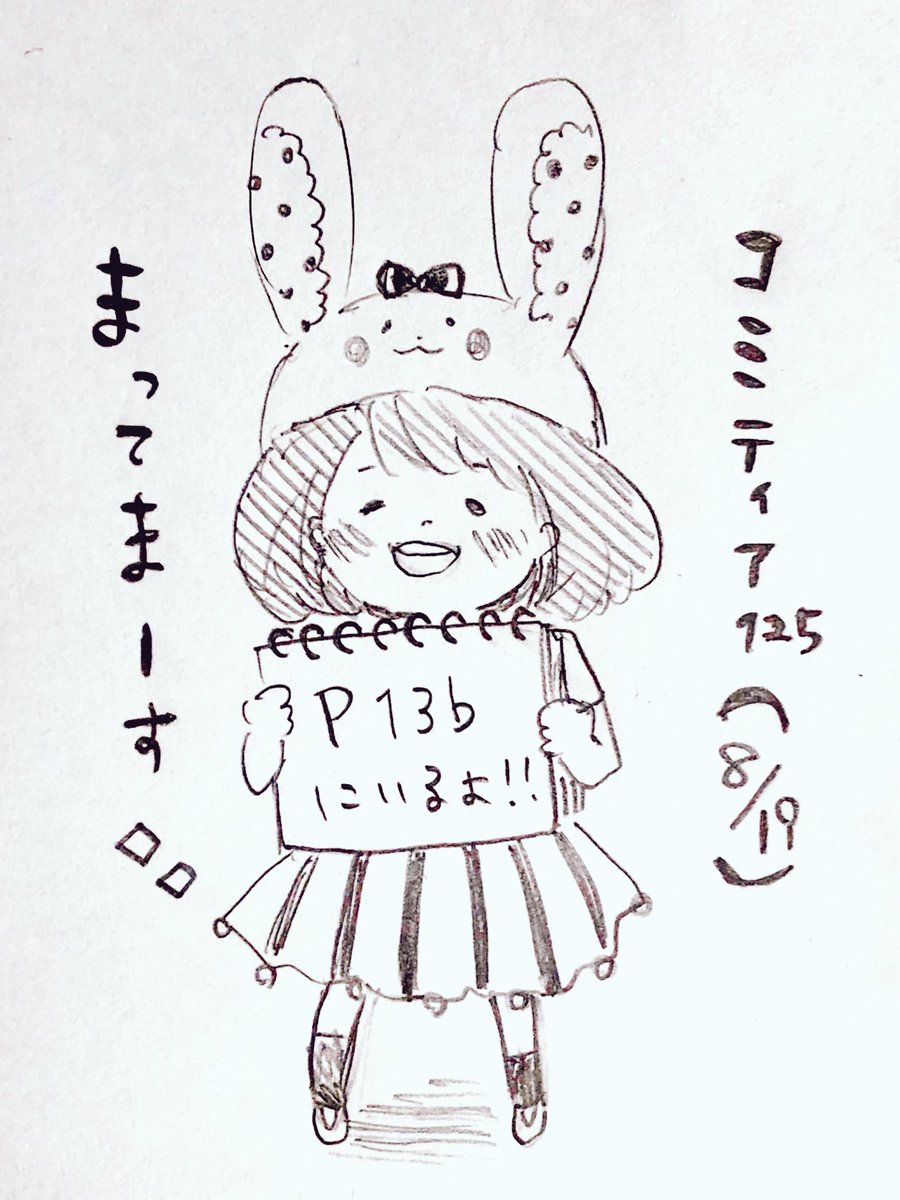 コミティア125(8/19)
P13b
にいるよ!!
まってまーす